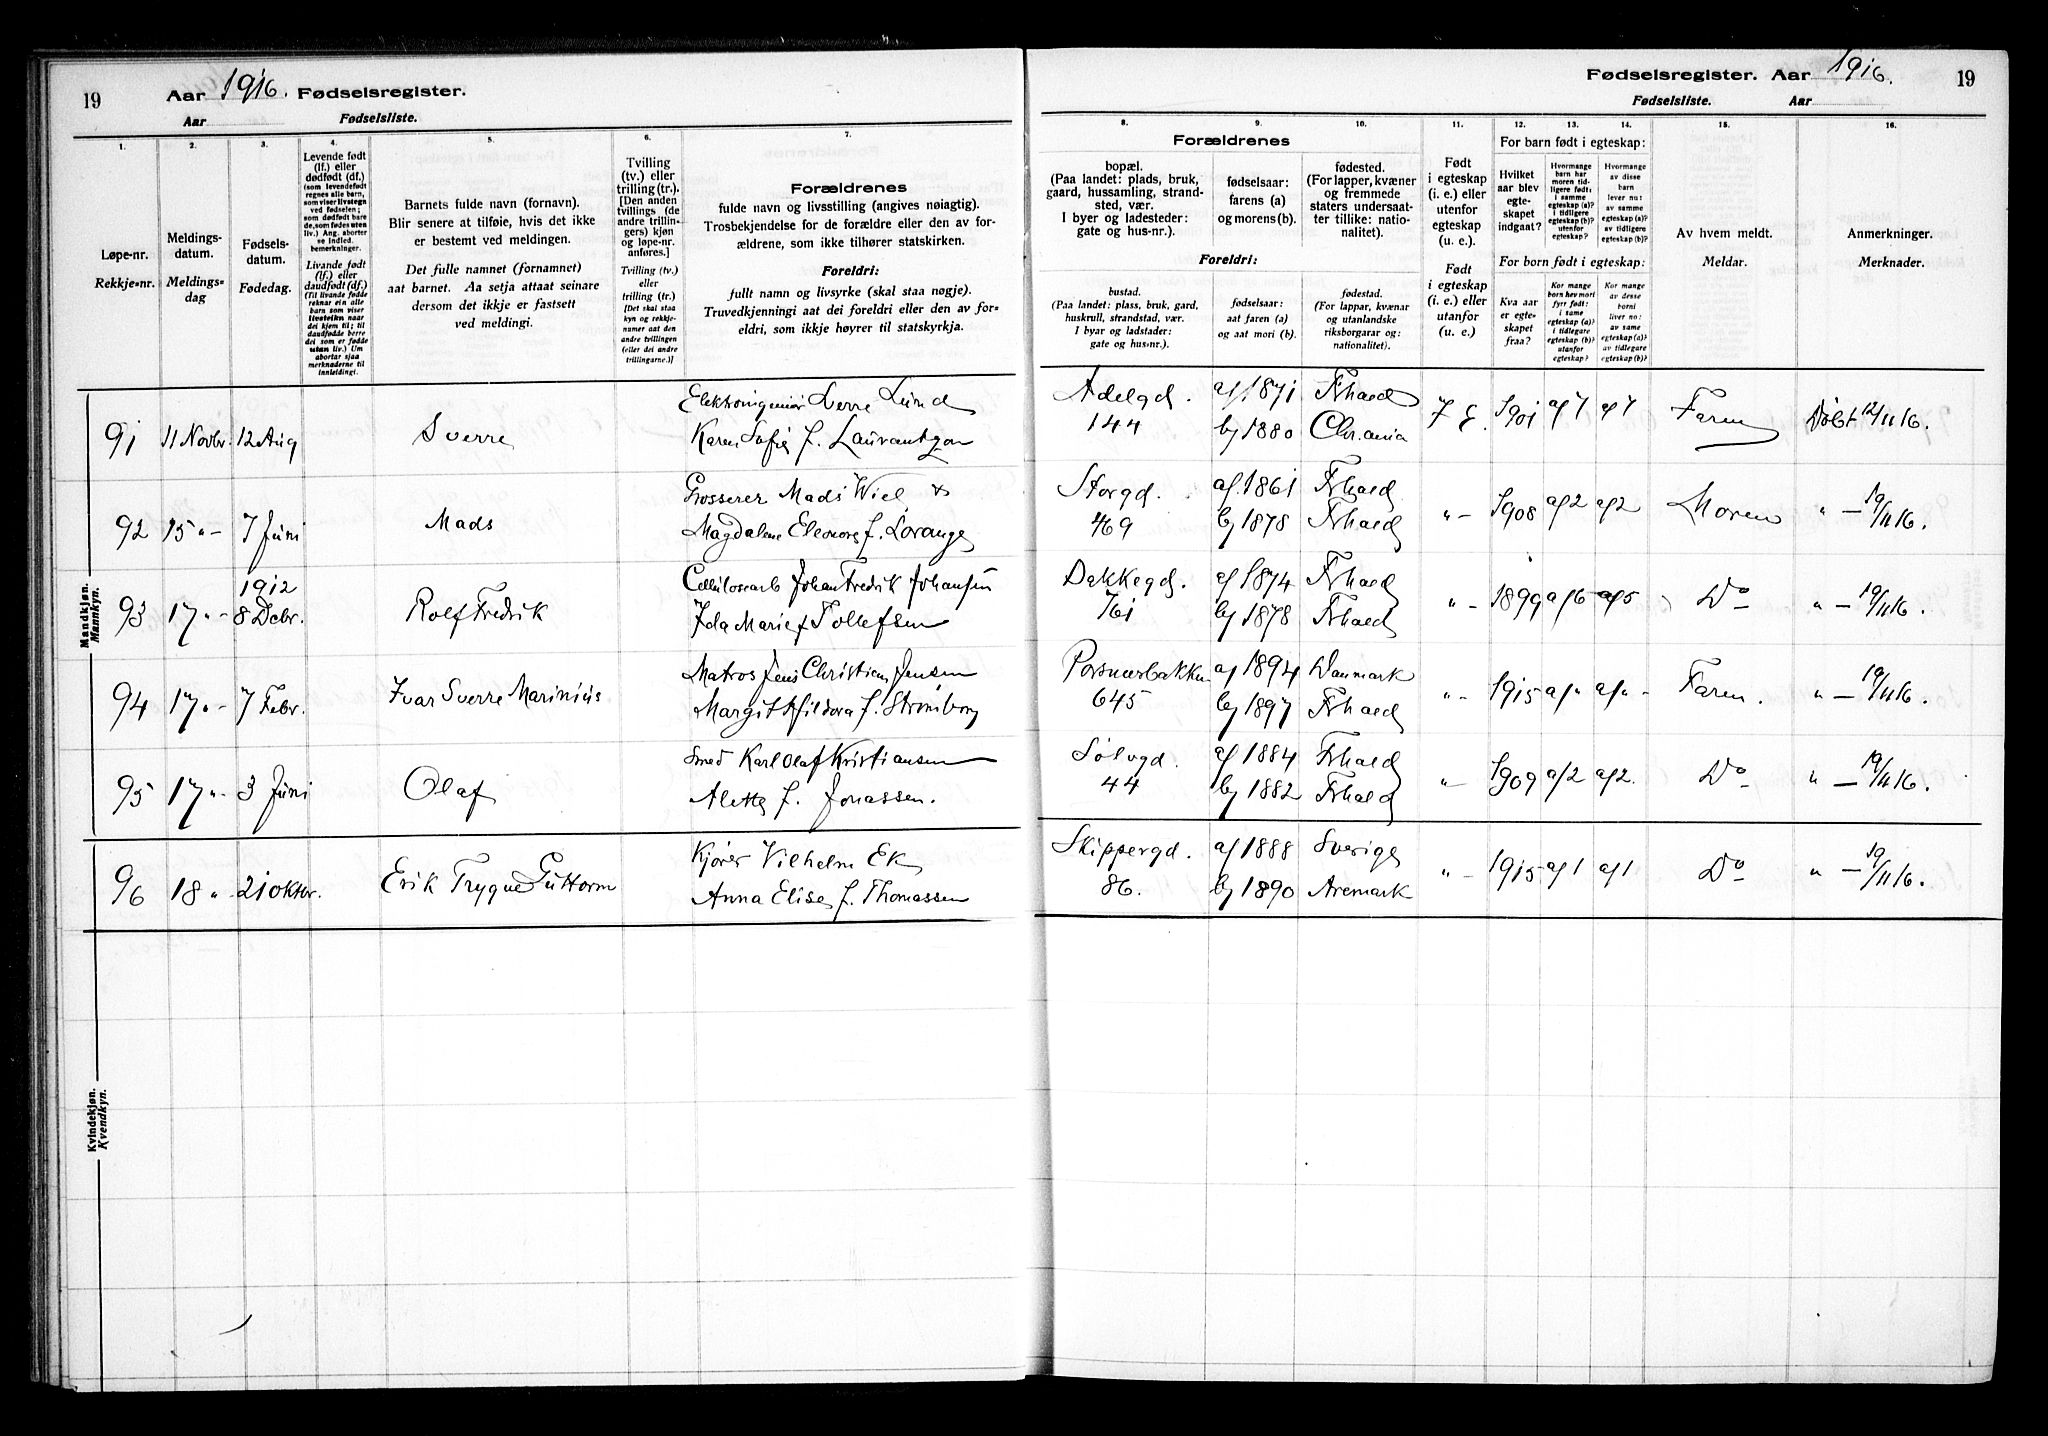 19 Aar 1916. Fødselsregister.
Aar Fødselsliste.
Fødselsregister. Aar 1916. 19
Fødselsliste. Aar
1.
Løpe-nr.
Rekkje-nr.
2.
Meldings-
datum.
Meldings-
dag
3.
Fødsels-
datum.
Fødedag.
4.
Levende født
(lf.) eller
dødfødt (df.)
(som levendefødt
regnes alle barn,
som viser livstegn
ved fødselen;
som dødfødt bare
de, som fødes uten
liv.) Ang. aborter
se indled.
bemerkninger.
Livande født
(lf.) eller
daudfødt (df.)
(Til livande fødde
reknar ein alle
barn som viser
livsteikn naar
dei kjem til; til
daudfødde berre
dei som er fødde
utan liv.) Um
abortar sjaa
merknaderne til
innleidingi.
5.
Barnets fulde navn (fornavn).
Blir senere at tilføie, hvis det ikke
er bestemt ved meldingen.
Det fulle namnet (fornamnet)
aat barnet. Aa setja attaat seinare
dersom det ikkje er fastsett
ved meldingi.
6.
Tvilling
(tv.) eller
trilling (tr.).
[Den anden
tvillings (de
andre trillin-
gers) kjøn
og løpe-nr.
anføres.]
Tvilling (tv.)
eller
trilling (tr.)
[Det skal staa
kyn og rekkje-
numer aat den
andre trillingen
(eller dei andre
trillingarne.)]
7.
Forældrenes
fulde navn og livsstilling (angives nøiagtig).
Trosbekjendelse for de forældre eller den av for-
ældrene, som ikke tilhører statskirken.
Foreldri:
fullt namn og livsyrke (skal staa nøgje).
Truvedkjenningi aat dei foreldri eller den av for-
eldri, som ikkje høyrer til statskyrkja.
Forældrenes
8.
bopæl.
(Paa landet: plads, bruk,
gaard, hussamling, strand-
sted, vær.
I byer og ladesteder:
gate og hus-nr.).
9.
fødselsaar:
farens (a)
og morens (b).
10.
fødested.
(For lapper, kvæner
og fremmede
staters undersaat-
ter tillike: natio-
nalitet).
Foreldri:
bustad.
(Paa landet: plass, bruk, gard,
huskrull, strandstad, vær.
I byar og ladstader:
gate og hus-nr.).
fødselsaar:
aat faren (a)
og aat mori (b).
fødestad.
(For lappar, kvænar
og utanlandske
riksborgarar og:
nationalitet).
11.
Født
i egteskap
(i. e.) eller
utenfor
egteskap
(u. e.).
Født
i egteskap
(i. e.) eller
utanfor
(u. e.)
For barn født i egteskap:
12.
Hvilket
aar blev
egte-
skapet
indgaat?
13.
Hvormange
barn har
moren tid-
ligere født:
i samme
egteskap (a)?
i tidligere
egteskap (b)?
utenfor
egteskap?
14.
Hvormange
av disse
barn
lever nu:
av samme
egteskap (a)?
av tidligere
egteskap (b)?
For born født i egteskap:
Kva aar
er egte-
skapet
fraa?
Kor mange
born hev mori
fyrr født:
i same
egteskap (a)?
i tidlegare
egteskap (b)?
utanfor
egteskap?
Kor mange
av desse
borni
liver no:
av same
egteskap (a)?
av tidlegare
egteskap (b)?
15.
Av hvem meldt.
Meldar.
16.
Anmerkninger.
Merknader.
Mandkjøn.
Mannkyn.
91 11 Novbr. 12 Aug Sverre Elektroingeniør Sverre Lund
Karen Sofie f. Laurantzon
Adelgd. 144 a) 1871 b) 1880 Frhald Chr.ania F E. 1901 a) 7 a) 7 Faren Døbt 12/11 16.
92 15 " - 7 Juni Mads Grosserer Mads Wiel &
Magdalene Eleonore f. Lorange
Storgd. 469 a). 1861 b) 1878 Frhald Frhald " - 1908 a) 2 a) 2 Moren " - 19/11 16.
93 17 " - 1912 8 Debr. Rolf Fredrik Cellulosearb Johan Fredrik Johansen
Ida Marie f Tollefsen
Dakkegd. 761 a) 1874 b) 1878 Frhald Frhald " - 1899 a) 6 a) 5 Do " - 19/11 16.
94 17 " - 7 Febr. Ivar Sverre Marinius Matros Jens Christian Jensen
Margit Hildora f. Strømborg
645 a) 1894 b) 1897 Danmark Frhald " - 1915 a) " a) " - Faren. " - 19/11 16.
95 17 " - 3 Juni Olaf Smed Karl Olaf Kristiansen
Alette f. Jonassen.
Sølvgd. 44 a) 1884 b) 1882 Frhald Frhald " - 1909 a) 2 a) 2. Do " - 19/11 16.
96 18 " - 21 oktbr. Erik Trygve Guttorm Kjører Vilhelm Ek
Anna Elise f. Thomassen
Skippergd. 86. a) 1888 b) 1890 Sverige Aremark " - 1915 a) 1 a) 1 Do " - 19/11 16.
Kvindekjøn.
Kvendkyn.